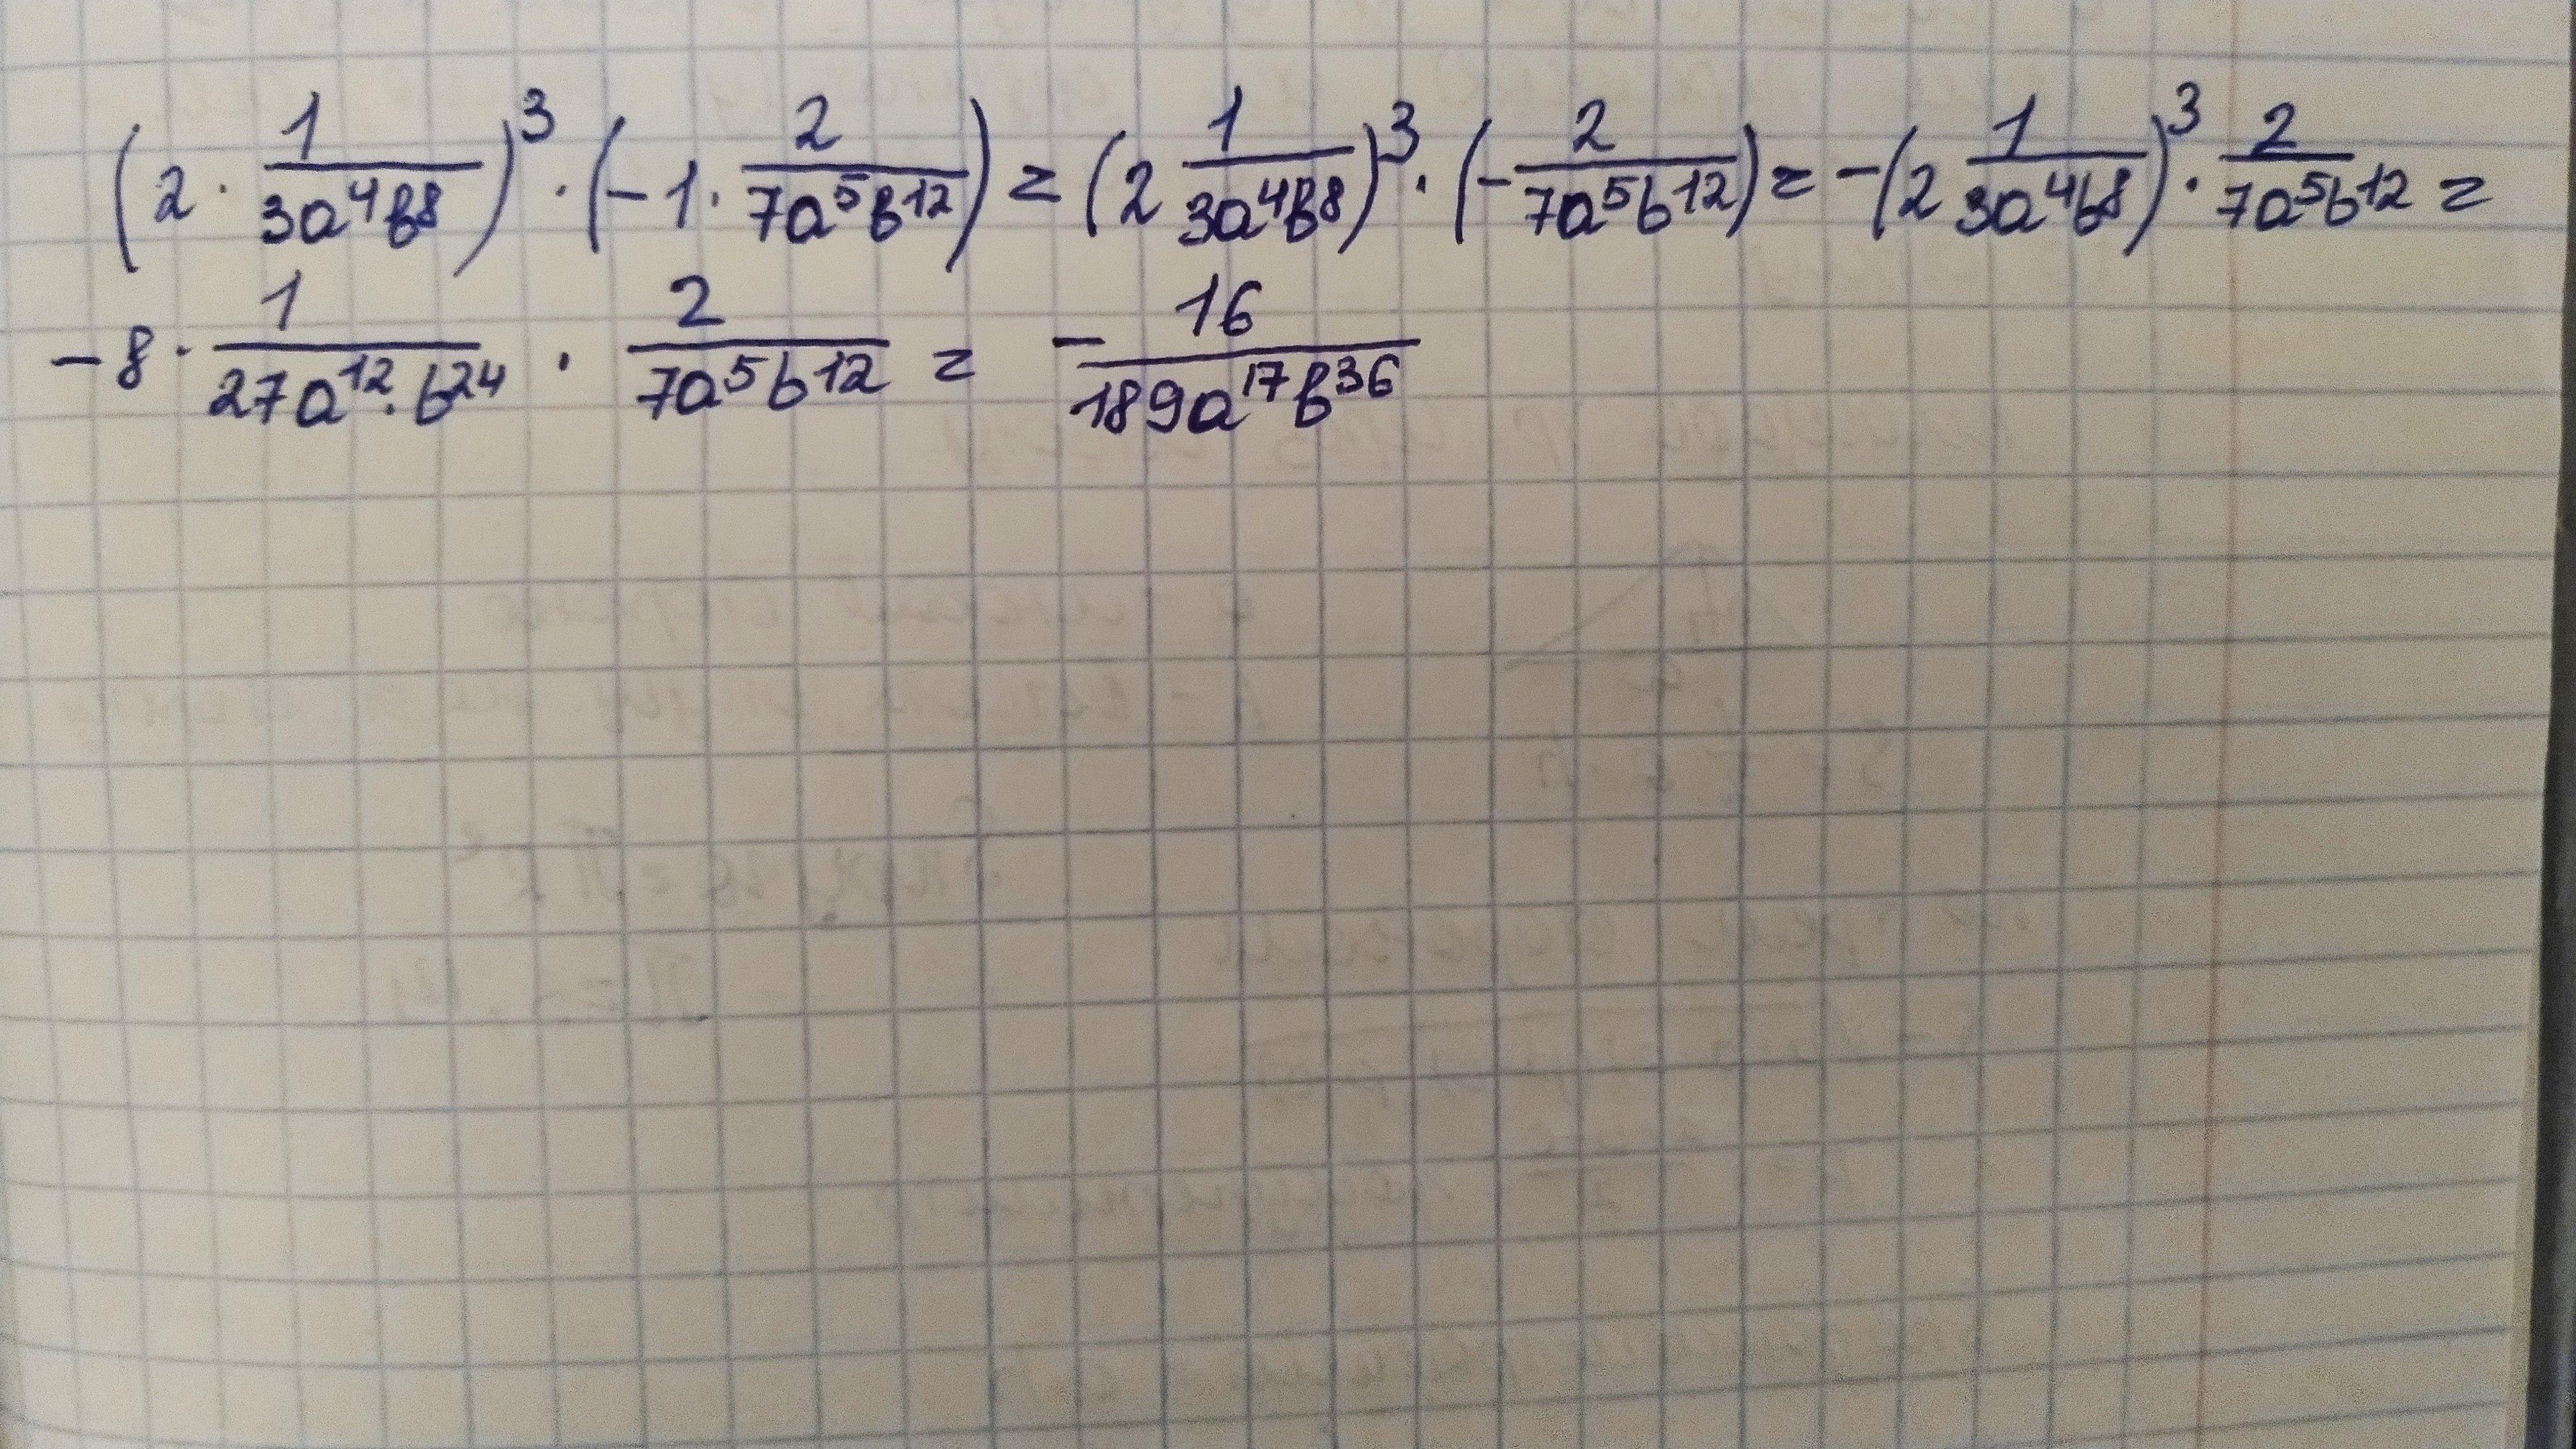 (2 · 1/(3a⁴b⁸))³ · (-1 · 2/(7a⁵b¹²)) = (2 1/(3a⁴b⁸))³ · (- 2/(7a⁵b¹²)) = -(2 1/(3a⁴b⁸))³ · 2/(7a⁵b¹²) =
-8 · 1/(27a¹² · b²⁴) · 2/(7a⁵b¹²) = - 16/(189a¹⁷b³⁶)